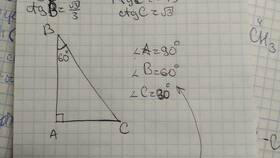 ctg B = √3/3
ctg C = √3
B
60°
A
C
∠A = 90°
∠B = 60°
∠C = 30°
CH₃